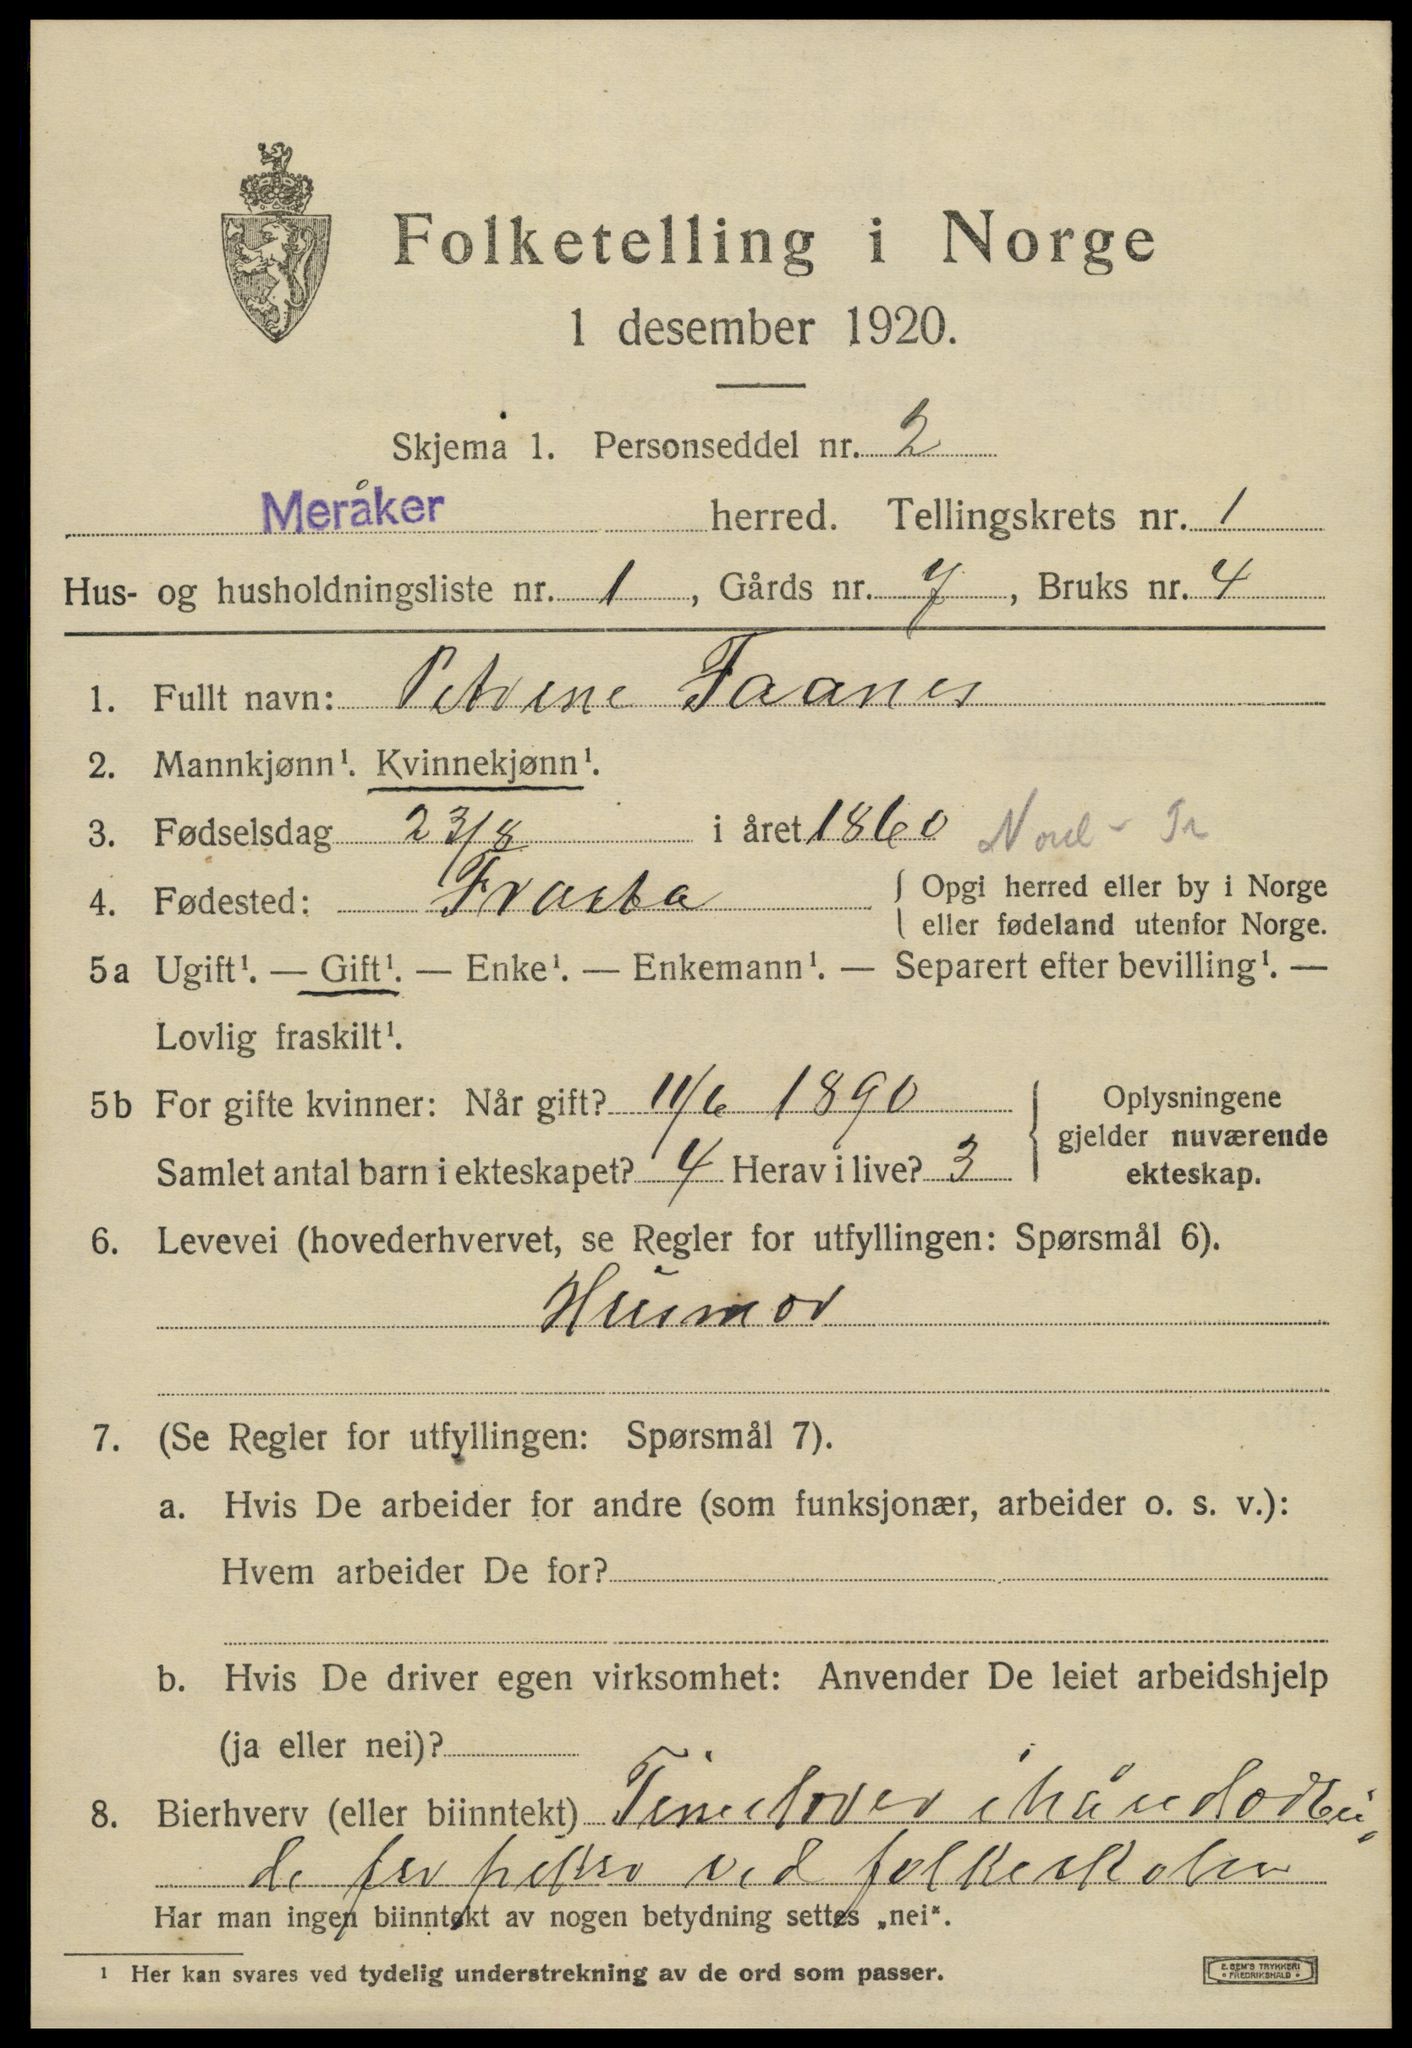 Folketelling i Norge
1 desember 1920.
Skjema 1. Personseddel nr. 2
Meråker herred. Tellingskrets nr. 1
Hus- og husholdningsliste nr. 1, Gårds nr. 7, Bruks nr. 4
1. Fullt navn: Petrine Faanes
2. Mannkjønn¹. Kvinnekjønn¹.
3. Fødselsdag 23/8 i året 1860 Nord-Tr
4. Fødested: Frosta { Opgi herred eller by i Norge
eller fødeland utenfor Norge.
5a Ugift¹. — Gift¹. — Enke¹. — Enkemann¹. — Separert efter bevilling¹. —
Lovlig fraskilt¹.
5b For gifte kvinner: Når gift? 11/6 1890
Samlet antal barn i ekteskapet? 4 Herav i live? 3
} Oplysningene
gjelder nuværende
ekteskap.
6. Levevei (hovederhvervet, se Regler for utfyllingen: Spørsmål 6).
Husmor
7. (Se Regler for utfyllingen: Spørsmål 7).
a. Hvis De arbeider for andre (som funksjonær, arbeider o. s. v.):
Hvem arbeider De for?
b. Hvis De driver egen virksomhet: Anvender De leiet arbeidshjelp
(ja eller nei)?
8. Bierhverv (eller biinntekt) i håndarbei
de for ved folkeskolen
Har man ingen biinntekt av nogen betydning settes „nei“.
¹ Her kan svares ved tydelig understrekning av de ord som passer.
E. SEM'S TRYKKERI
FREDRIKSHALD